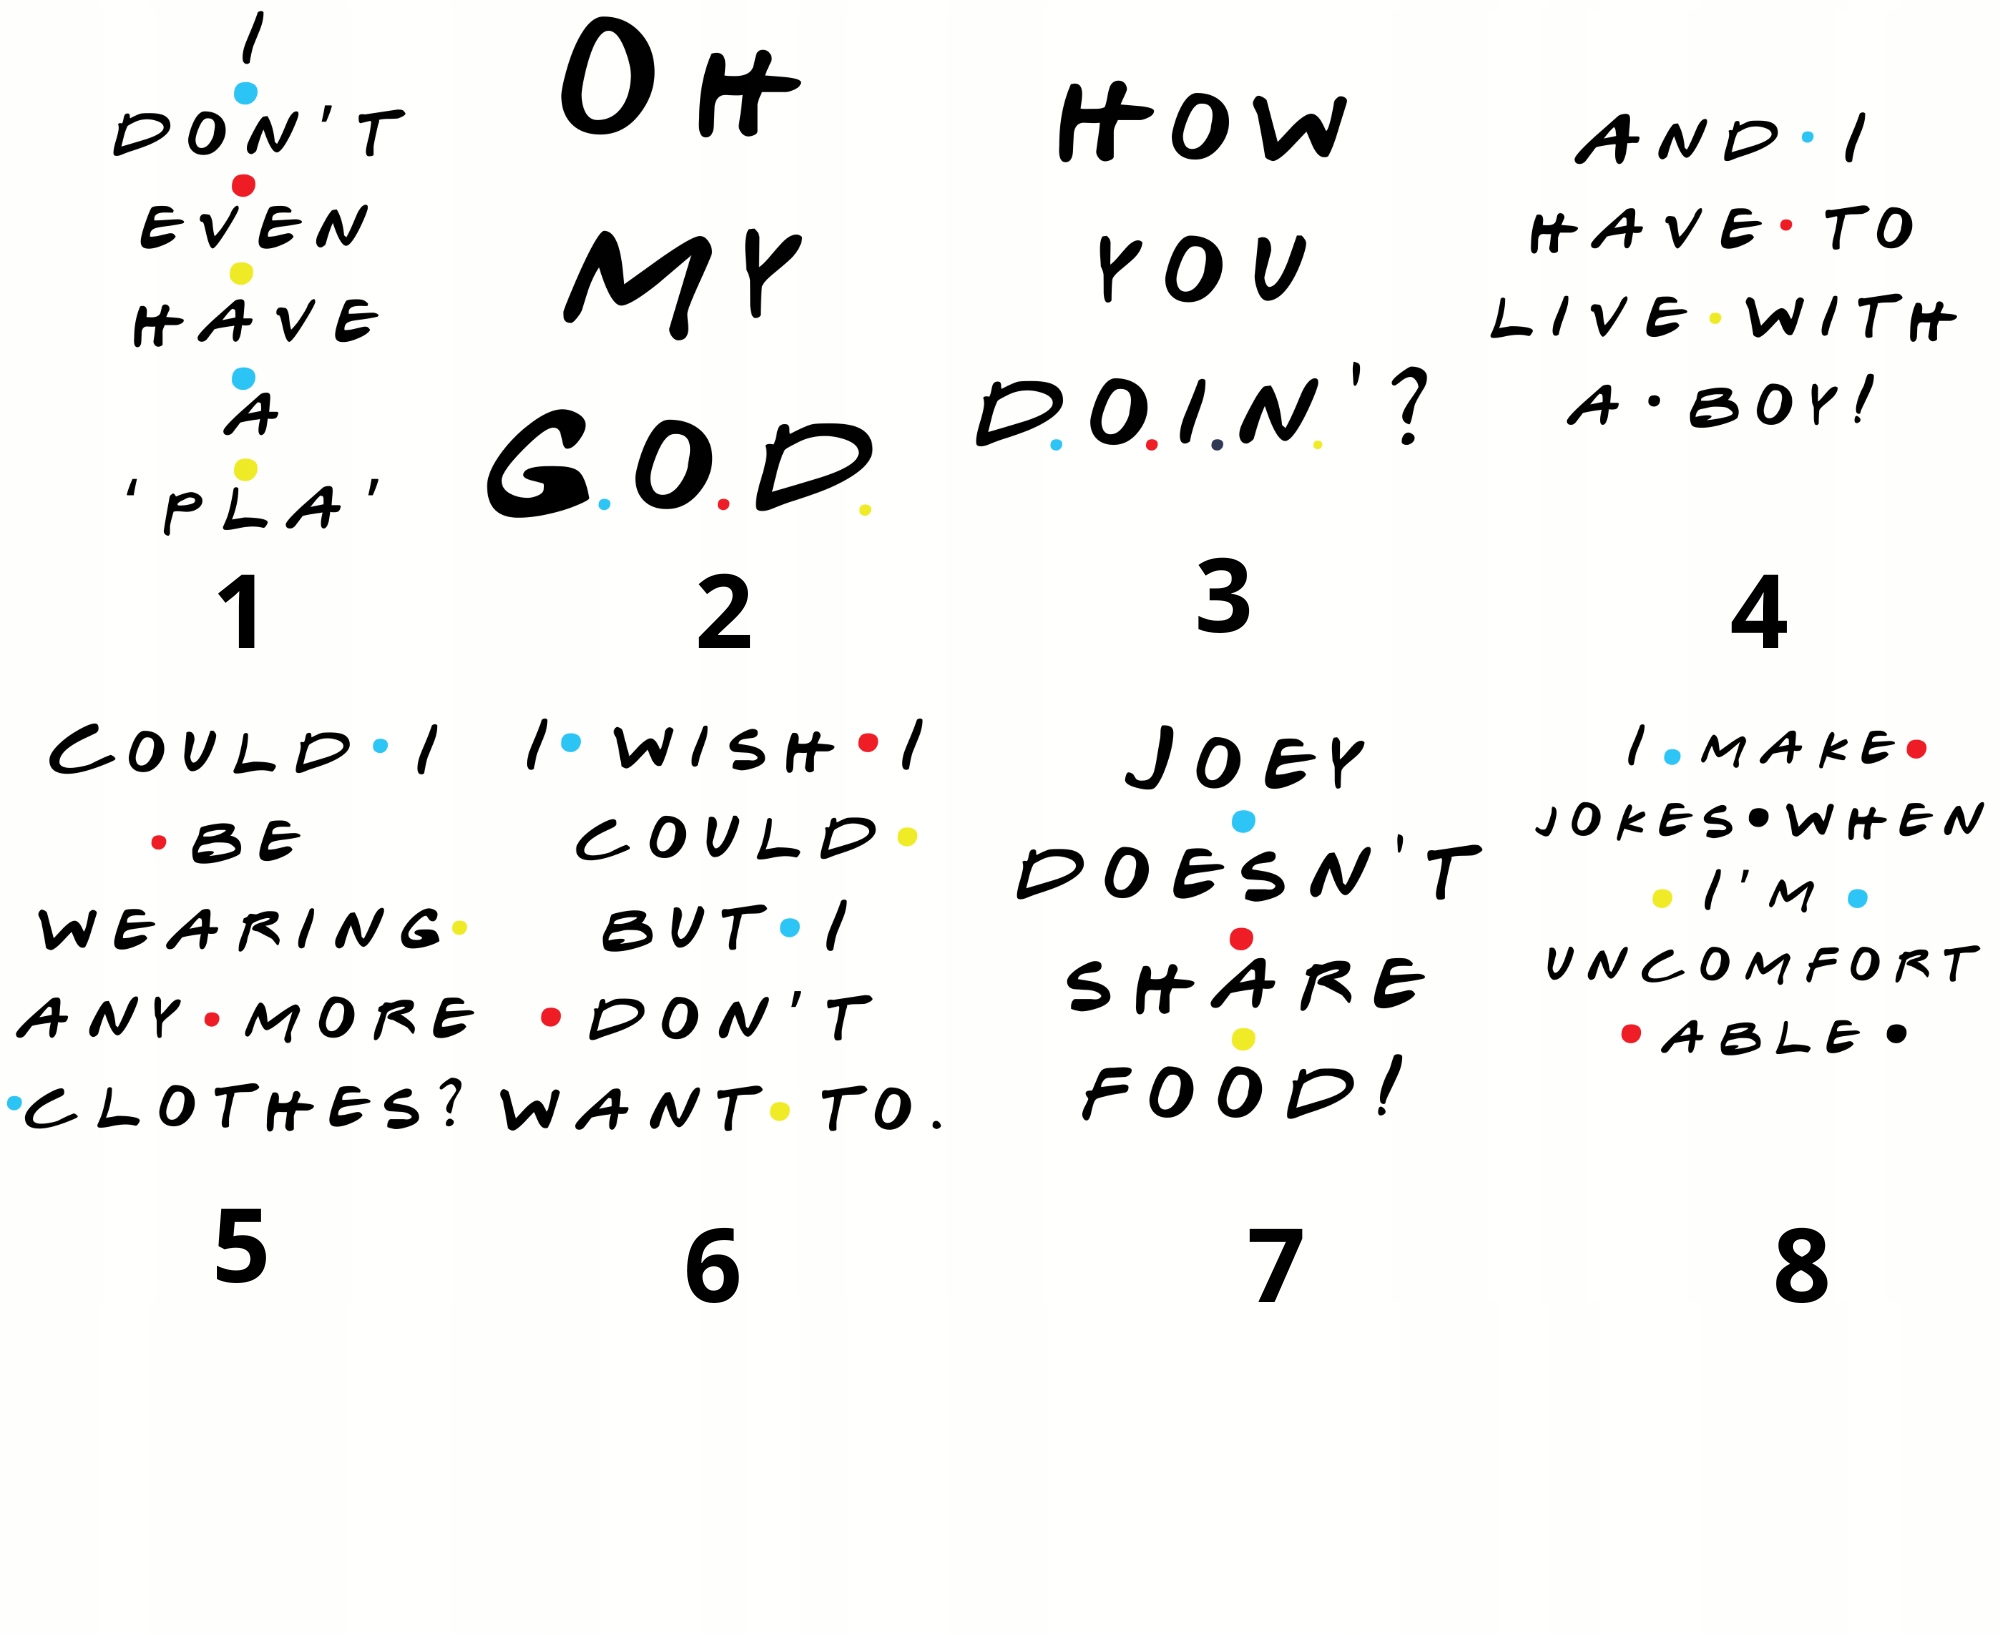 I
DON'T
EVEN
HAVE
A
'PLA'
1
OH
MY
G.O.D.
2
HOW
YOU
D.O.I.N.'?
3
AND·I
HAVE·TO
LIVE·WITH
A·BOY!
4
COULD·I
·BE
WEARING·
ANY·MORE
·CLOTHES?
5
I·WISH·I
COULD·
BUT·I
·DON'T
WANT·TO.
6
JOEY
DOESN'T
SHARE
FOOD!
7
I·MAKE·
JOKES·WHEN
·I'M·
UNCOMFORT
·ABLE·
8